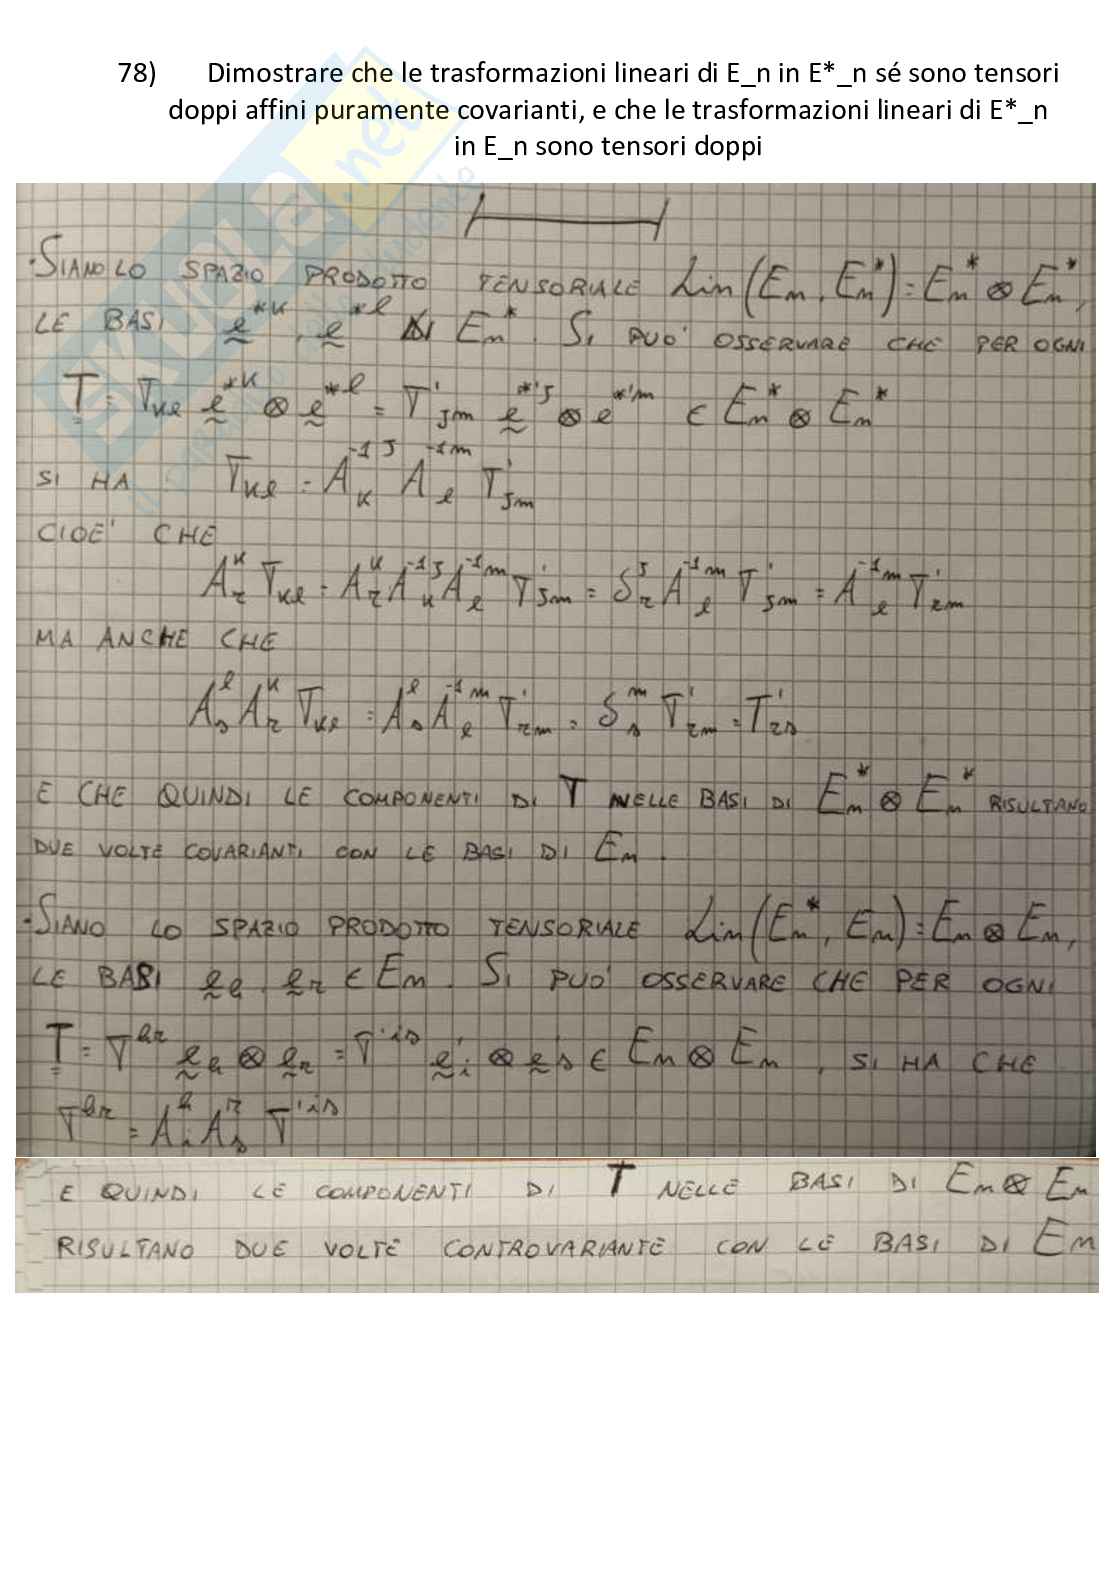 78) Dimostrare che le trasformazioni lineari di E_n in E*_n sé sono tensori
doppi affini puramente covarianti, e che le trasformazioni lineari di E*_n
in E_n sono tensori doppi
·SIANO LO SPAZIO PRODOTTO TENSORIALE Lin(Eₙ, Eₙ*) = Eₙ* ⊗ Eₙ*,
LE BASI e*ᵏ, e*ˡ DI Eₙ*. SI PUO' OSSERVARE CHE PER OGNI
T = Tₖₗ e*ᵏ ⊗ e*ˡ = T'ⱼₘ e*'ʲ ⊗ e*'ᵐ ∈ Eₙ* ⊗ Eₙ*
SI HA Tₖₗ = A⁻¹ʲₖ A⁻¹ᵐₗ T'ⱼₘ
CIOE' CHE
Aᵏᵣ Tₖₗ = Aᵏᵣ A⁻¹ʲₖ A⁻¹ᵐₗ T'ⱼₘ = δʲᵣ A⁻¹ᵐₗ T'ⱼₘ = A⁻¹ᵐₗ T'ᵣₘ
MA ANCHE CHE
Aˡₛ Aᵏᵣ Tₖₗ = Aˡₛ A⁻¹ᵐₗ T'ᵣₘ = δᵐₛ T'ᵣₘ = T'ᵣₛ
E CHE QUINDI LE COMPONENTI DI T NELLE BASI DI Eₙ* ⊗ Eₙ* RISULTANO
DUE VOLTE COVARIANTI CON LE BASI DI Eₙ.
·SIANO LO SPAZIO PRODOTTO TENSORIALE Lin(Eₙ*, Eₙ) = Eₙ ⊗ Eₙ,
LE BASI eₕ, eᵣ ∈ Eₙ. SI PUO' OSSERVARE CHE PER OGNI
T = Tʰʳ eₕ ⊗ eᵣ = T'ⁱˢ e'ᵢ ⊗ e'ₛ ∈ Eₙ ⊗ Eₙ, SI HA CHE
Tʰʳ = Aʰᵢ Aʳₛ T'ⁱˢ
E QUINDI LE COMPONENTI DI T NELLE BASI DI Eₙ ⊗ Eₙ
RISULTANO DUE VOLTE CONTROVARIANTE CON LE BASI DI Eₙ